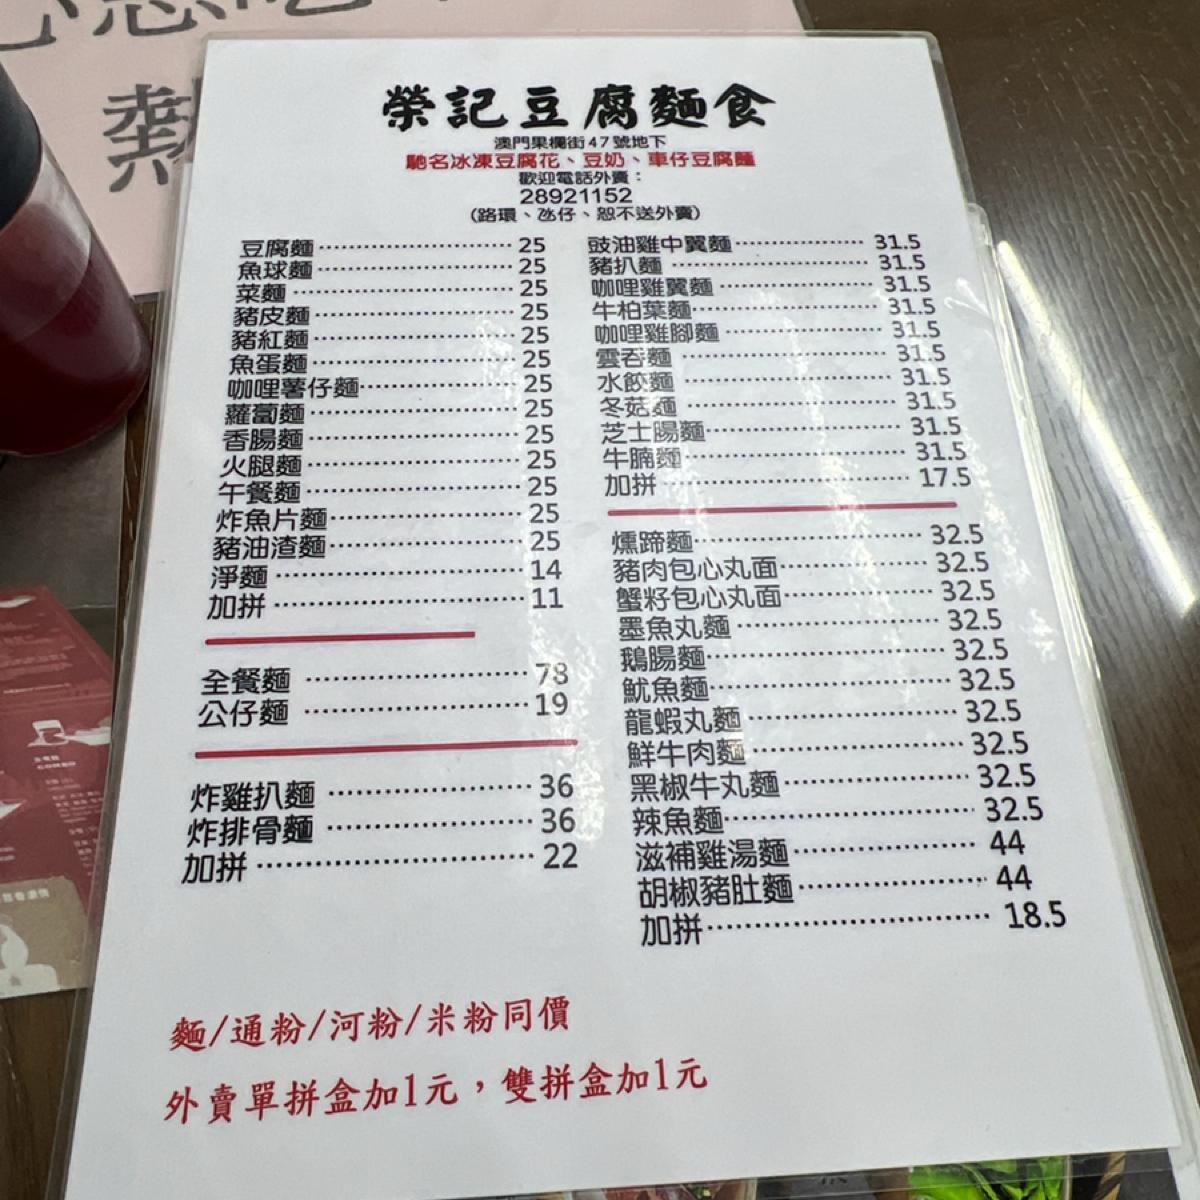 榮記豆腐麵食
澳門果欄街47號地下
馳名冰凍豆腐花、豆奶、車仔豆腐麵
歡迎電話外賣：
28921152
(路環、氹仔、恕不送外賣)
豆腐麵 25
魚球麵 25
菜麵 25
豬皮麵 25
豬紅麵 25
魚蛋麵 25
咖哩薯仔麵 25
蘿蔔麵 25
香腸麵 25
火腿麵 25
午餐麵 25
炸魚片麵 25
豬油渣麵 25
淨麵 14
加拼 11
全餐麵 78
公仔麵 19
炸雞扒麵 36
炸排骨麵 36
加拼 22
豉油雞中翼麵 31.5
豬扒麵 31.5
咖哩雞翼麵 31.5
牛柏葉麵 31.5
咖哩雞腳麵 31.5
雲吞麵 31.5
水餃麵 31.5
冬菇麵 31.5
芝士腸麵 31.5
牛腩麵 31.5
加拼 17.5
燻蹄麵 32.5
豬肉包心丸面 32.5
蟹籽包心丸面 32.5
墨魚丸麵 32.5
鵝腸麵 32.5
魷魚麵 32.5
龍蝦丸麵 32.5
鮮牛肉麵 32.5
黑椒牛丸麵 32.5
辣魚麵 32.5
滋補雞湯麵 44
胡椒豬肚麵 44
加拼 18.5
麵/通粉/河粉/米粉同價
外賣單拼盒加1元，雙拼盒加1元